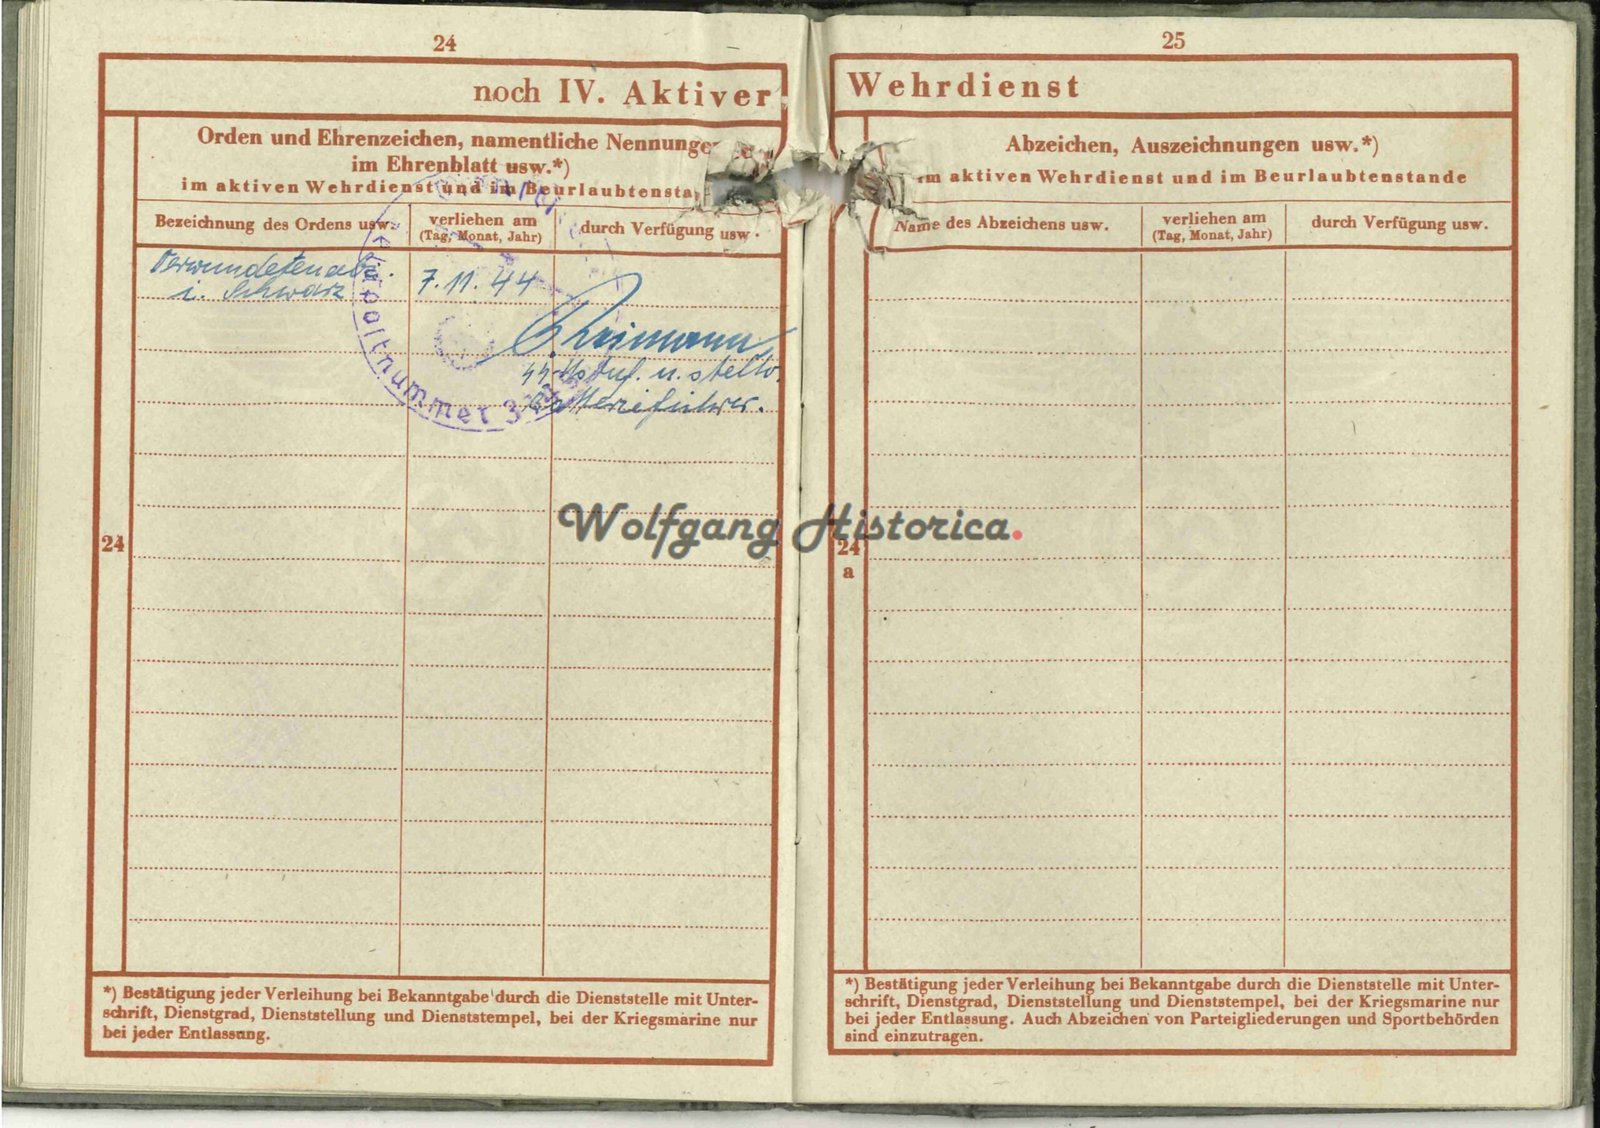 24
noch IV. Aktiver
Orden und Ehrenzeichen, namentliche Nennungen
im Ehrenblatt usw.*)
im aktiven Wehrdienst und im Beurlaubtensta
Bezeichnung des Ordens usw.
verliehen am
(Tag, Monat, Jahr)
durch Verfügung usw.
Verwundetenabz.
i. Schwarz
7.11.44
Reimann
Feldpostnummer
u. stellv.
Batterieführer.
24
*) Bestätigung jeder Verleihung bei Bekanntgabe durch die Dienststelle mit Unter-
schrift, Dienstgrad, Dienststellung und Dienststempel, bei der Kriegsmarine nur
bei jeder Entlassung.
25
Wehrdienst
Abzeichen, Auszeichnungen usw.*)
im aktiven Wehrdienst und im Beurlaubtenstande
Name des Abzeichens usw.
verliehen am
(Tag, Monat, Jahr)
durch Verfügung usw.
24
a
*) Bestätigung jeder Verleihung bei Bekanntgabe durch die Dienststelle mit Unter-
schrift, Dienstgrad, Dienststellung und Dienststempel, bei der Kriegsmarine nur
bei jeder Entlassung. Auch Abzeichen von Parteigliederungen und Sportbehörden
sind einzutragen.
Wolfgang Historica.